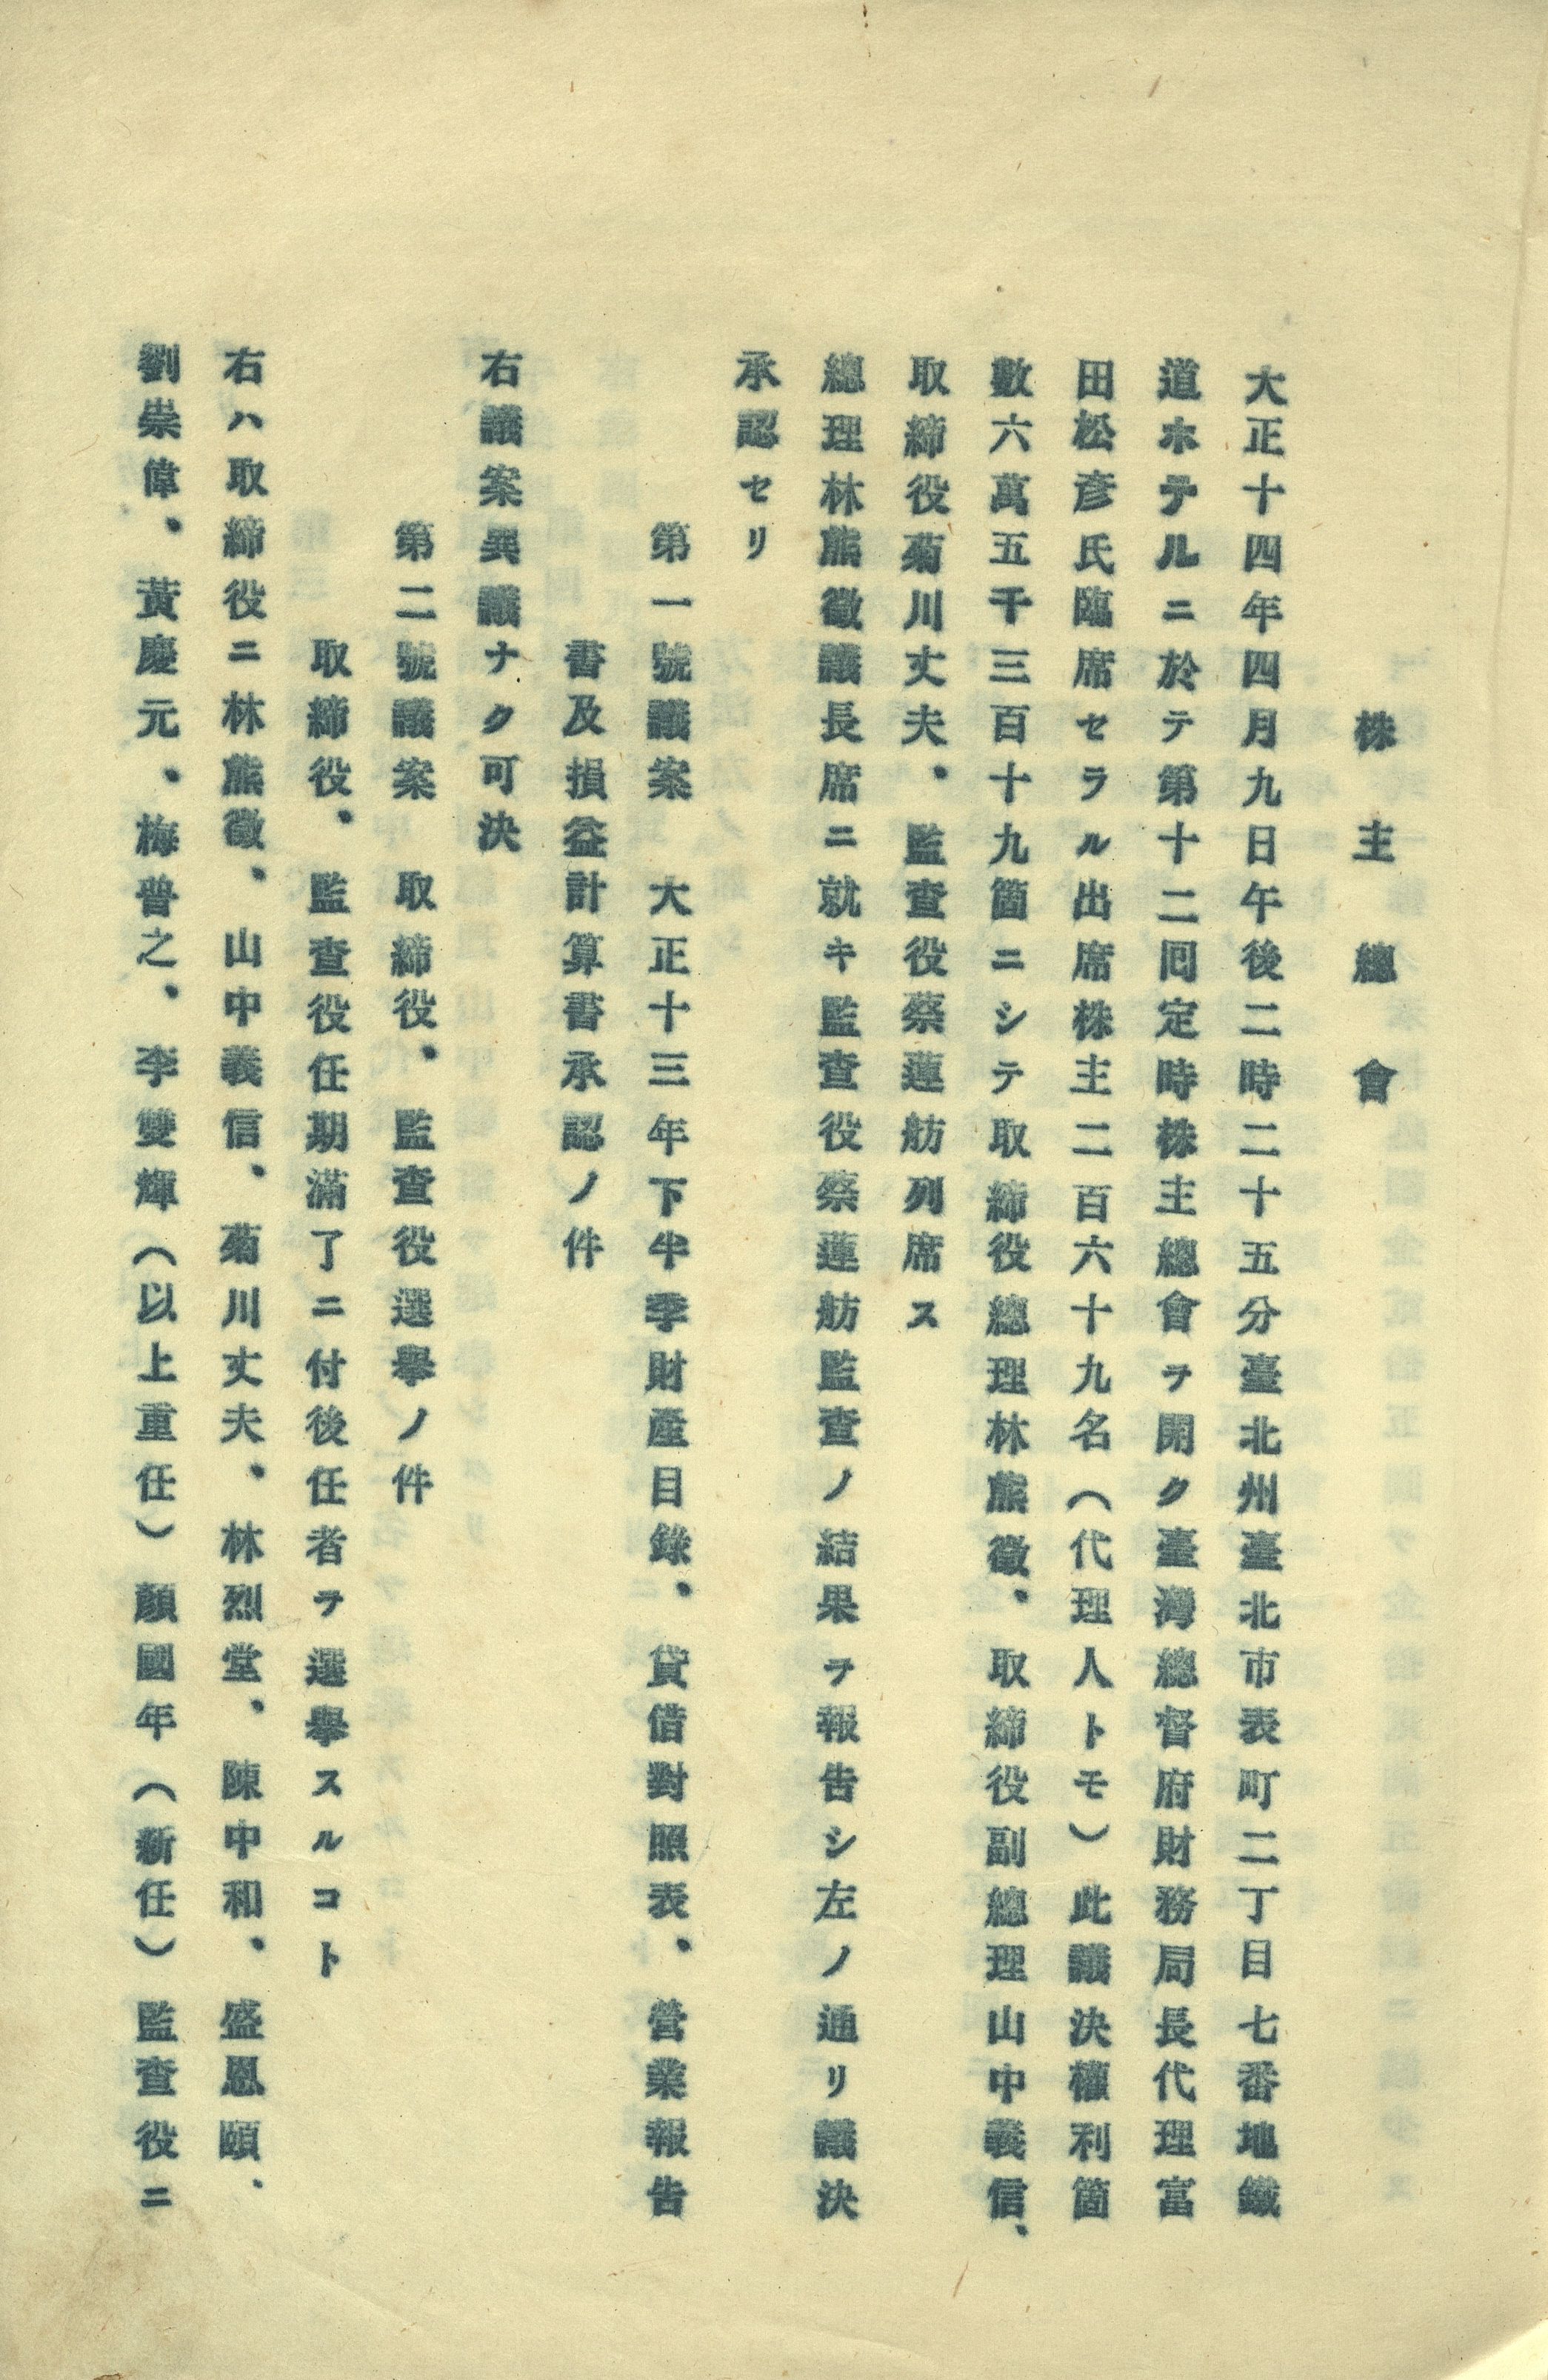 株主總會
大正十四年四月九日午後二時二十五分臺北州臺北市表町二丁目七番地鐵
道ホテルニ於テ第十二囘定時株主總會ヲ開ク臺灣總督府財務局長代理富
田松彥氏臨席セラル出席株主二百六十九名(代理人トモ)此議決權利箇
數六萬五千三百十九箇ニシテ取締役總理林熊徵、取締役副總理山中義信、
取締役菊川丈夫、監査役蔡蓮舫列席ス
總理林熊徵議長席ニ就キ監査役蔡蓮舫監査ノ結果ヲ報告シ左ノ通リ議決
承認セリ
第一號議案 大正十三年下半季財產目錄、貸借對照表、營業報告
書及損益計算書承認ノ件
右議案異議ナク可決
第二號議案 取締役、監査役選擧ノ件
取締役、監査役任期滿了ニ付後任者ヲ選擧スルコト
右ハ取締役ニ林熊徵、山中義信、菊川丈夫、林烈堂、陳中和、盛恩頤、
劉崇偉、黃慶元、梅普之、李雙輝(以上重任)顏國年(新任)監査役ニ